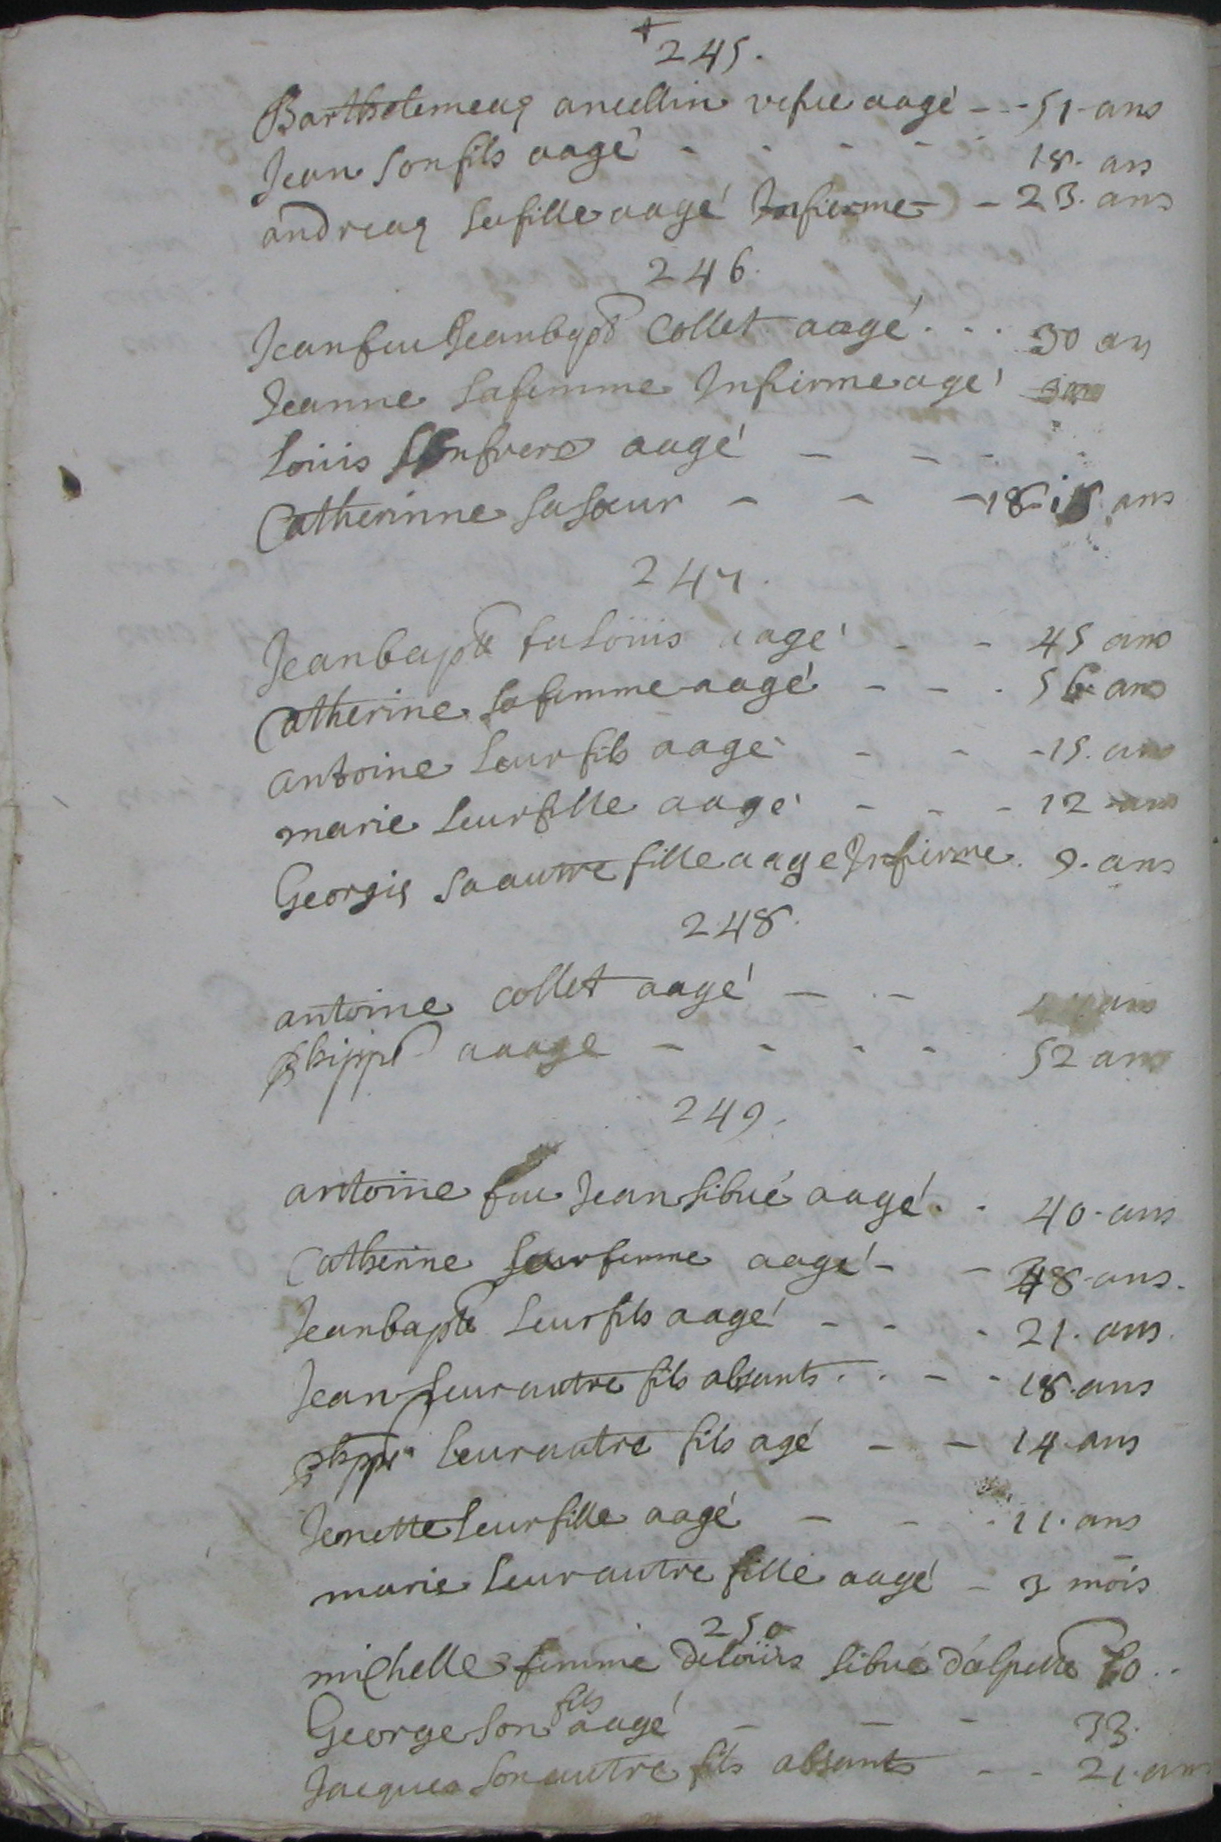 245.
Bartholemeaz ancellin vefue aagé - - 51 ans
Jean son fils aagé - - - - - 18. ans
andreaz sa fille aagé Infirme - 23. ans
246.
Jean feu Jean bapte Collet aagé . . . 30 ans
Jeanne sa femme Infirme agé
Loüis son frere aagé - - -
Catherinne sa soeur - - - 18 ans
247.
Jean bapte fu Loüis aagé - - 45 ans
Catherine sa femme aagé - - . 56 ans
antoine leur fils aagé - - - 15. ans
marie leur fille aagé - - - 12 ans
Georgis sa autre fille aage Infirme. 9. ans
248.
antoine Collet aagé - . - ans
phippe aaage - - - - 52 ans
249.
antoine feu Jean sibué aagé . . 40. ans
Catherine femme aagé - - 48 ans.
Jean bapte leur fils aagé - - - 21. ans
Jean leur autre fils absants . . - - 18. ans
phippe leur autre fils agé - - 14 ans
Jenette leur fille aagé - - - 11. ans
marie leur autre fille aagé - 3 mois
250
michelle femme de loüis sibué dalpette . .
George son fils aagé - - - 33.
Jacques son autre fils absants - - 21. ans